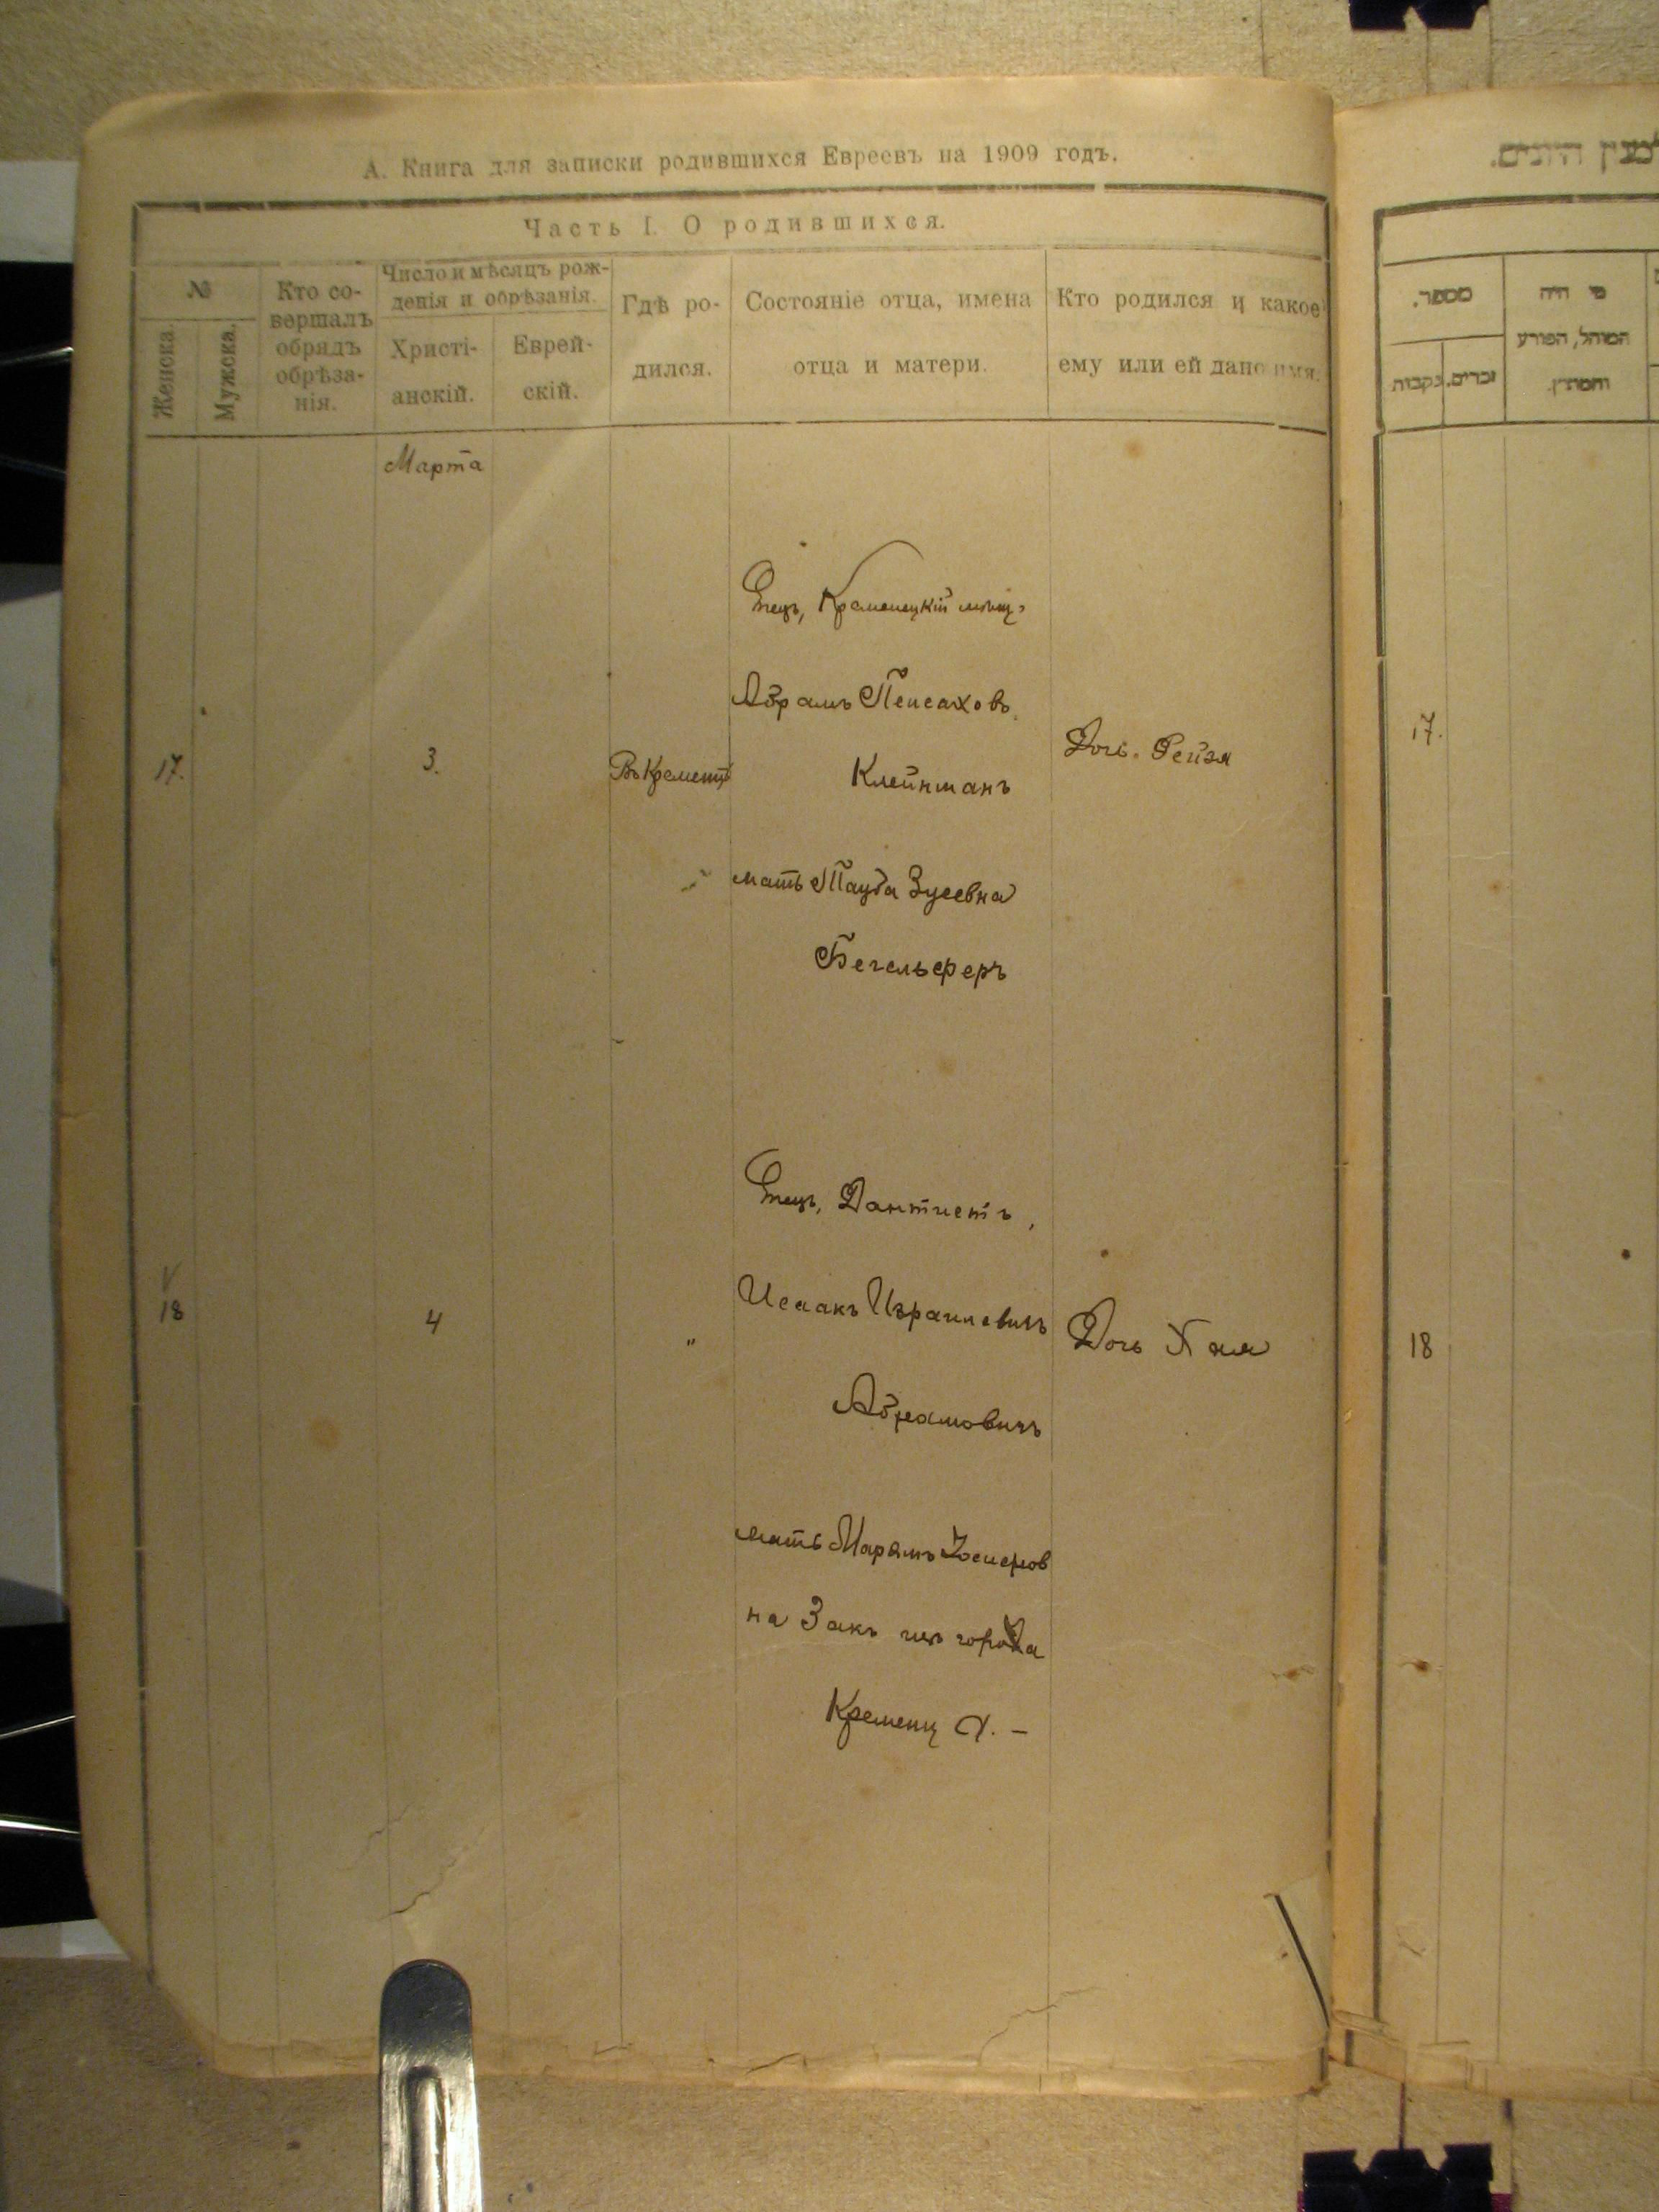 А. Книга для записки родившихся Евреевъ на 1909 годъ.
Часть I. О родившихся.
№
Женска.
Мужска.
Кто со-
вершалъ
обрядъ
обрѣза-
нія.
Число и мѣсяцъ рож-
денія и обрѣзанія.
Христі-
анскій.
Еврей-
скій.
Гдѣ ро-
дился.
Состояніе отца, имена
отца и матери.
Кто родился и какое
ему или ей дано имя.
Марта
17.
3.
Въ Кременцѣ
Отецъ, Кременецкій мѣщ.
Абрамъ Пейсахов.
Клейнманъ
мать Тауба Зусевна
Бегельферъ
Дочь. Рейзя
18
4
"
Отецъ, Дантистъ,
Исаакъ Израилевичъ
Абрамовичъ
мать Марьямъ Iосифов
на Закъ изъ города
Кременц
Дочь Хая
מספר.
זכרים.
נקבות
מי היה
המוהל, הפורע
והמוצץ.
17.
18